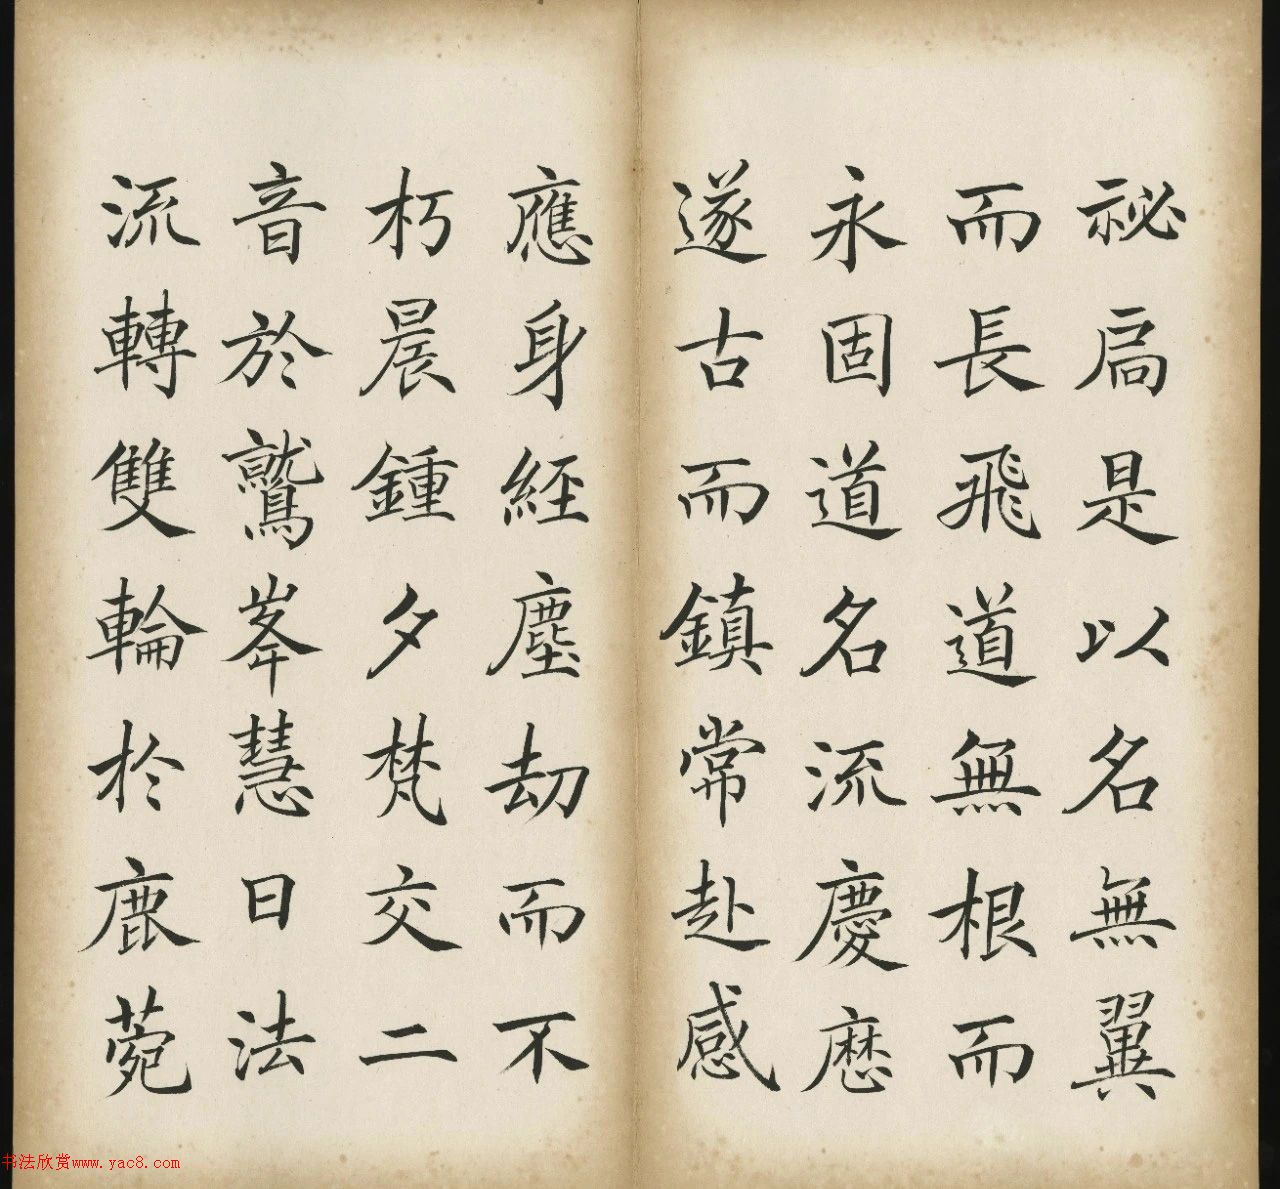 祕扃是以名無翼
而長飛道無根而
永固道名流慶歷
遂古而鎮常赴感
應身經塵劫而不
朽晨鍾夕梵交二
音於鷲峯慧日法
流轉雙輪於鹿菀
书法欣赏www.yac8.com